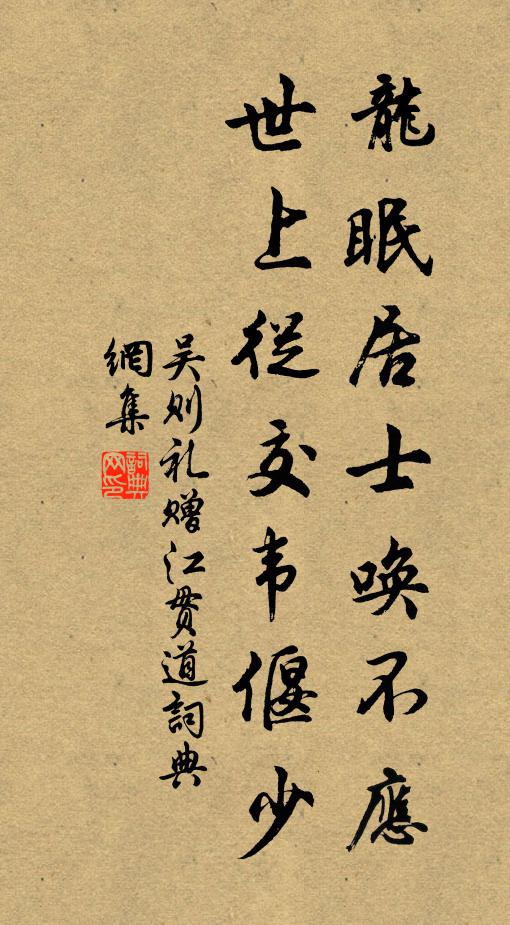 龍眠居士唤不應
世上從交韦偃少
吴则礼赠江贯道詞典
網集
詞典网印